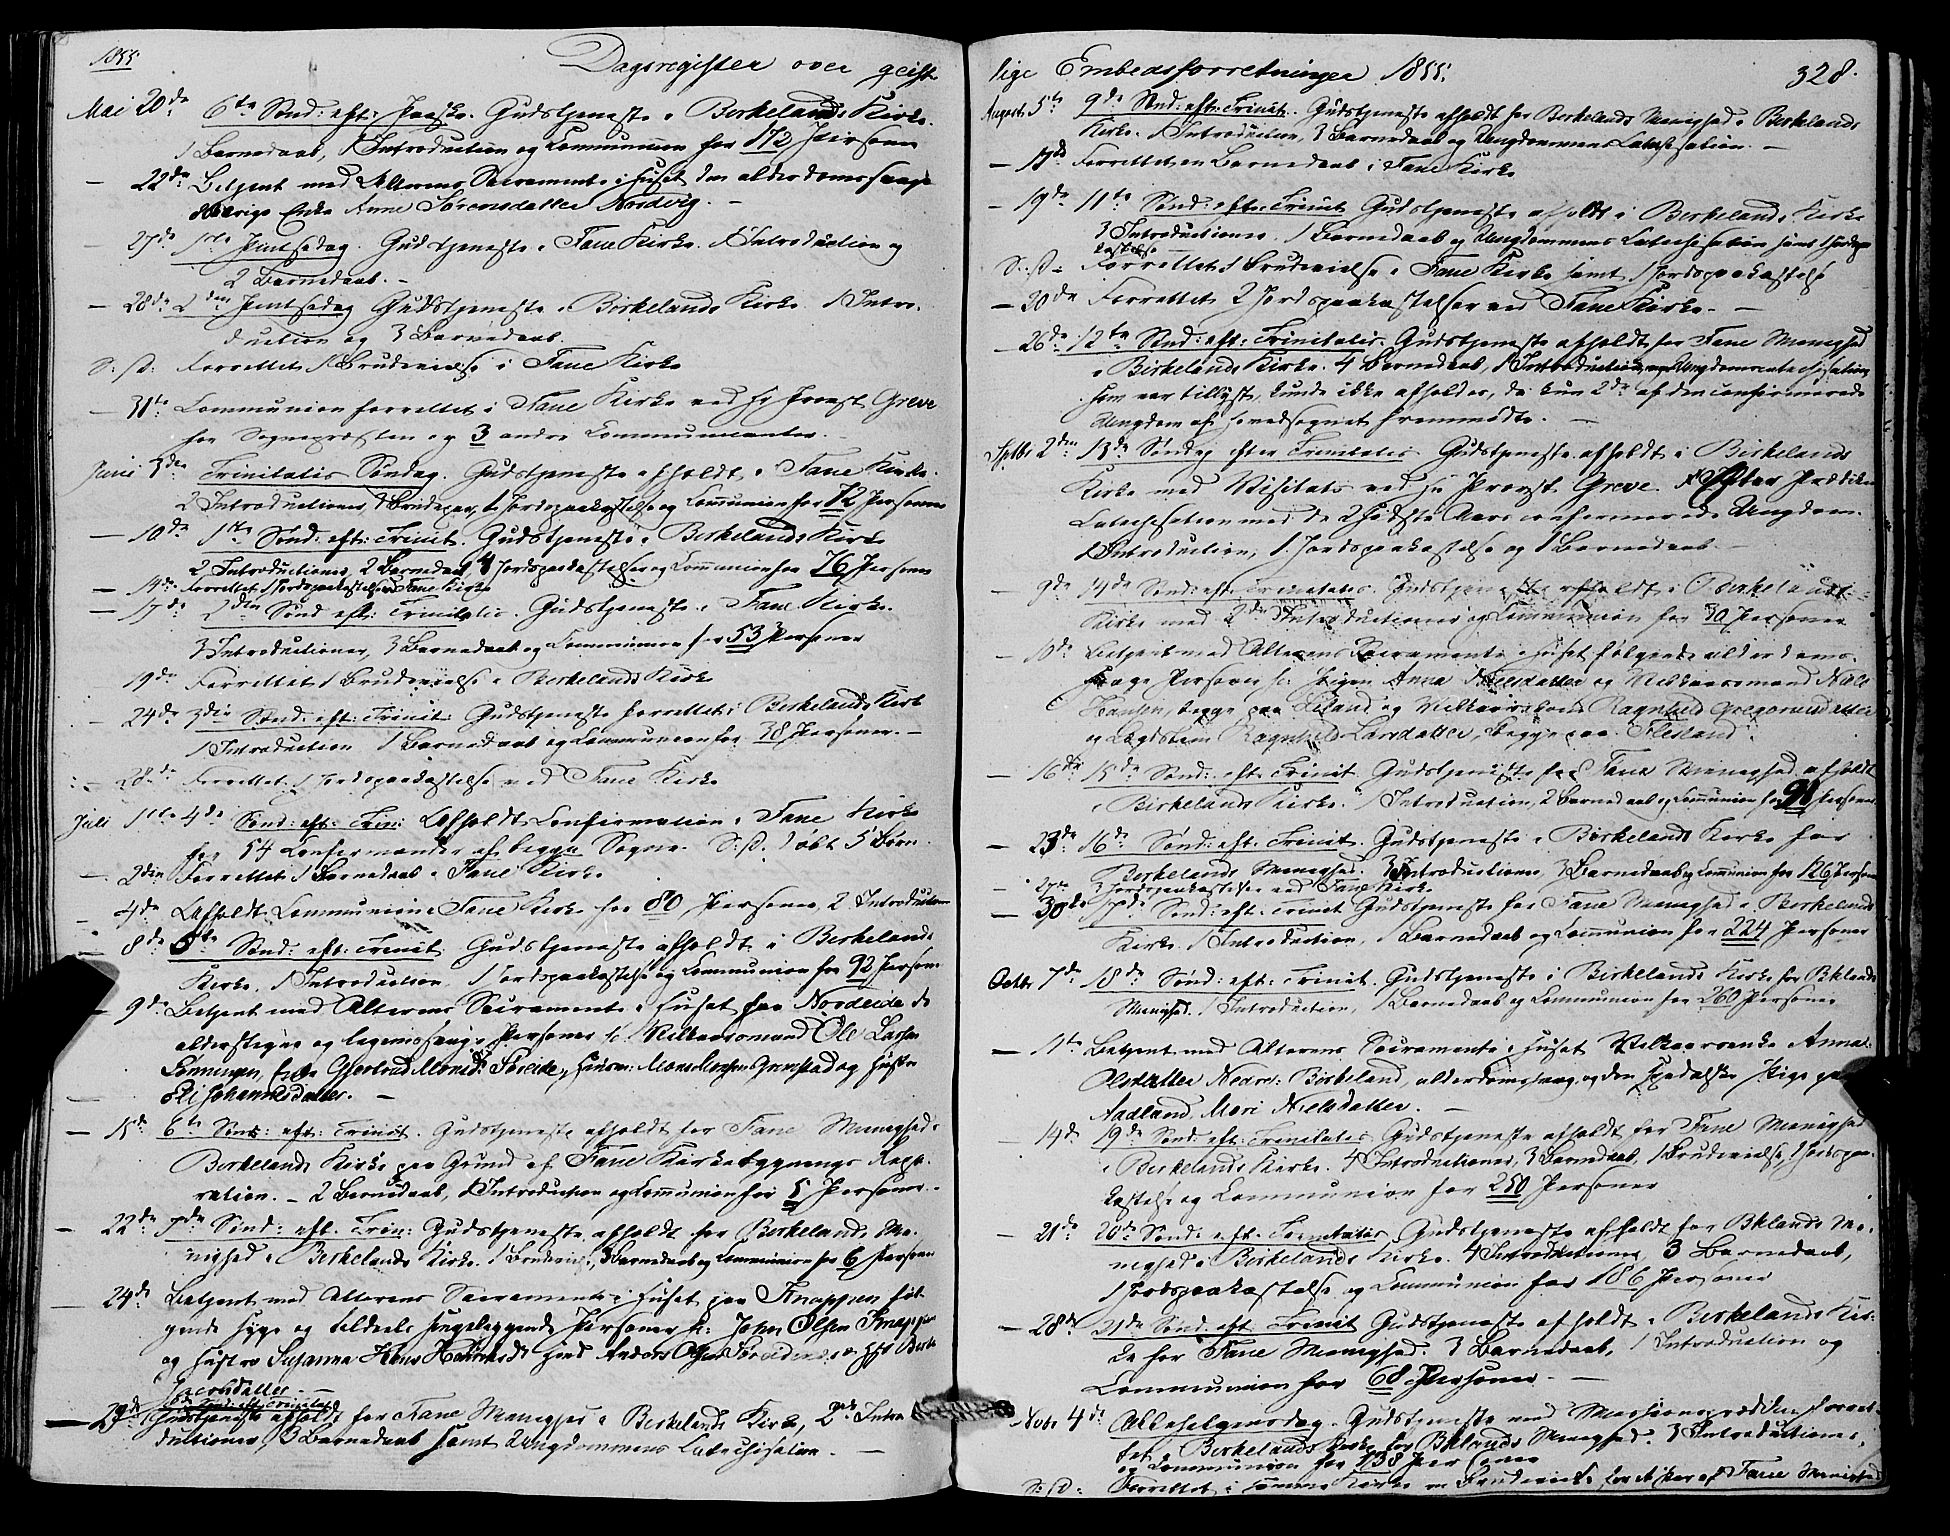 1855.
Dagsregister over geist-
Mai 20de 6te Sønd: eft: Paaske. Gudstjeneste i Birkelands Kirke.
1 Barnedaab, 1 Introduction og Communion for 172 Personer
— 22de Betjent med Alterens Sacramente i Huset den alderdomssvage
Enke Anna Sørensdatter Nordvig. —
— 27de 1ste Pintsedag. Gudstjeneste i Fane Kirke. 1 Introduction og
2 Barnedaab. —
— 28de 2den Pintsedag Gudstjeneste i Birkelands Kirke 1 Intro-
duction og 3 Barnedaab.
S: D: Forrettet 1 Brudevielse i Fane Kirke
— 31te Communion forrettet i Fane Kirke ved Hr Provst Greve
for Sognepræsten og 3 andre Communicanter. —
Junii 3die Trinitatis Søndag. Gudstjeneste afholdt i Fane Kirke.
2 Introductioner, 1 Brudepar, 1 Jordspaakastelse og Communion for 72 Personer
— 10de 1ste Sønd: eft: Trinit. Gudstjeneste i Birkelands Kirke
2 Introductioner, 2 Barnedaab, 4 Jordspaakastelser og Communion for 76 Personer
— 14de Forrettet 1 Jordspaakastelse Fane Kirke
— 17de 2den Sønd eft: Trinitatis. Gudstjeneste i Fane Kirke.
3 Introductioner, 3 Barnedaab og Communion for 53 Personer
— 19de Forrettet 1 Brudevielse i Birkelands Kirke
— 24de 3die Sønd: eft: Trinit: Gudstjeneste forrettet i Birkelands Kirke
1 Introduction 1 Barnedaab og Communion for 38 Personer. —
— 28de Forrettet 1 Jordspaakastelse ved Fane Kirke
Juli 1ste 4de Sønd: eft: Trin: Afholdt Confirmation i Fane Kirke
for 54 Confirmander af begge Sogne. S: D. døbt 5 Børn.
— 2den Forrettet 1 Barnedaab i Fane Kirke
— 4de Afholdt Communion i Fane Kirke for 80 Personer, 2 Introductioner
— 8de 5te Sønd: eft: Trinit. Gudstjeneste afholdt i Birkelands
Kirke. 1 Introduction, 1 Jordspaakastelse og Communion for 92 Personer
— 9de Betjent med Alterens Sacramente i Huset paa Nordeide de
alderstegne og legemssvage Personer s: Vilkaarsmand Ole Larsen
Enke Gjertrud Monsd: Søreide, Huusm: Mons og Hustru
Johannesdatter. —
— 15de 6te Sønd: eft: Trinit. Gudstjeneste afholdt for Fane Menighed i
Birkelands Kirke paa Grund af Fane Kirkebygnings Repa-
ration. — 2 Barnedaab, 1 Introduction og Communion for 5 Personer. —
— 22de 7de Sønd: eft. Trin: Gudstjeneste afholdt for Birkelands Me-
nighed i Birkelands Kirke. 1 Brudevielse, 3 Barnedaab og Communion for 6 Personer
— 24de Betjent med Alterens Sacramente i Huset paa Knappen føl-
gende syge og tildeels sengeliggende Personer s: John Olsen Knappen
og Hustro Susanna Anders Olsen
Jacobsdatter. —
8de Sønd: eft: Trinitatis
— 29de Gudstjeneste afholdt for Fane Menighed i Birkelands Kirke, 2de Intro-
ductioner, 3 Barnedaab samt Ungdommens Catechisation. —
lige Embedsforretninger 1855.
328.
August 5te 9de Sønd: eft: Trinit. Gudstjeneste afholdt for Birkelands Menighed i Birkelands
Kirke. 1 Introduction, 3 Barnedaab og Ungdommens Catechisation. —
— 17de Forrettet en Barnedaab i Fane Kirke
— 19de 11te Sønd: eft: Trinit Gudstjeneste afholdt i Birkelands Kirke
3 Introductioner, 1 Barnedaab og Ungdommens Catechisation samt 1 Jordspaa-
kastelse
S: D: — Forrettet 1 Brudevielse i Fane Kirke samt 1 Jordspaakastelse
— 20de Forrettet 2 Jordspaakastelser ved Fane Kirke. —
— 26de 12te Sønd: eft: Trinitatis. Gudstjeneste afholdt for Fane Menighed
i Birkelands Kirke. 4 Barnedaab, 1 Introduction, Ungdomscatechisation
som var tillyst, kunde ikke afholdes, da kun 2de af den confirmerede
Ungdom af Hovedsognet fremmødte. —
Septbr 2den 13de Søndag efter Trinitatis Gudstjeneste afholdt i Birkelands
Kirke med Visitats ved Hr Provst Greve. Efter Prædiken
Catechisation med de 2 sidste Aars confirmerede Ungdom.
1 Introduction, 1 Jordspaakastelse og 1 Barnedaab. —
— 9de 14de Sønd: eft: Trinitatis. Gudstjeneste afholdt i Birkelands
Kirke med 2de Introductioner og Communion for 30 Personer
— 10de Betjent med Alterens Sacramente i Huset følgende alderdoms-
svage Personer s: Pigen Anna Nielsdatter og Vilkaarsmand Niels
Hansen, begge paa Liland og Vilkaarskone Ragnhild Gregoriusdatter
og Lægdslem Ragnhild Larsdatter, begge paa Flesland.
— 16de 15de Sønd: eft: Trinit. Gudstjeneste for Fane Menighed afholdt
i Birkelands Kirke. 1 Introduction, 2 Barnedaab og Communion for 91 Personer
— 23de 16de Sønd: eft: Trinit. Gudstjeneste i Birkelands Kirke for
Birkelands Menighed. 3 Introductioner, 3 Barnedaab og Communion for 126 Personer
— 27de 3 Jordspaakastelser ved Fane Kirke
— 30te 17de Sønd: eft: Trinit Gudstjeneste for Fane Menighed i Birkelands
Kirke. 1 Introduction, 1 Barnedaab og Communion for 224 Personer
Octbr 7de 18de Sønd: eft: Trinit. Gudstjeneste i Birkelands Kirke for Bklands
Menighed. 1 Introduction, 1 Barnedaab og Communion for 260 Personer
— 11te Betjent med Alterens Sacramente i Huset Vilkaarsenke Anna
Olsdatter Nedre: Birkeland, alderdomssvag, og den spedalske Pige paa
Aadland, Mari Nielsdatter. —
— 14de 19de Sønd: eft: Trinitatis Gudstjeneste afholdt for Fane Menighed
i Birkelands Kirke. 4 Introductioner, 3 Barnedaab, 1 Brudevielse, 1 Jordspaa-
kastelse og Communion for 250 Personer
— 21de 20de Sønd: eft: Trinitatis Gudstjeneste afholdt for Bklands Me-
nighed i Birkelands Kirke. 4 Introductioner, 3 Barnedaab,
1 Jordspaakastelse og Communion for 186 Personer
— 28de 21de Sønd: eft Trinit Gudstjeneste afholdt i Birkelands Kir-
ke for Fane Menighed. 3 Barnedaab, 1 Introduction og
Communion for 68 Personer. —
Novbr 4de Allehelgensdag. Gudstjeneste med Missionsprædiken forret-
tet i Birkelands Kirke for Bklands Menighed. 3 Introductioner,
og Communion for 138 Personer
S: D: Forrettet i samme Kirke en Brudevielse for et Par af Fane Menighed